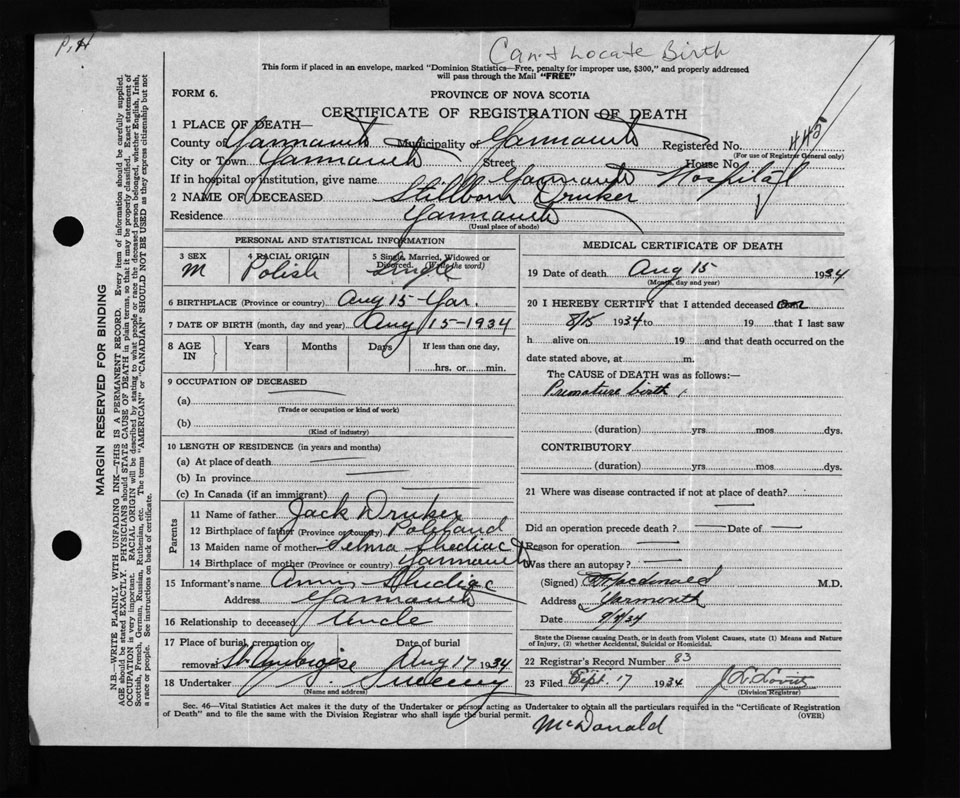 P. H
Can't Locate Birth
This form if placed in an envelope, marked "Dominion Statistics—Free, penalty for improper use, $300," and properly addressed
will pass through the Mail "FREE"
FORM 6.
PROVINCE OF NOVA SCOTIA
CERTIFICATE OF REGISTRATION OF DEATH
1 PLACE OF DEATH—
County of Yarmouth Municipality of Yarmouth Registered No. 445
(For use of Registrar General only)
City or Town Yarmouth Street House No.
If in hospital or institution, give name Yarmouth Hospital
2 NAME OF DECEASED Stillborn Druker
Residence Yarmouth
(Usual place of abode)
PERSONAL AND STATISTICAL INFORMATION
3 SEX 4 RACIAL ORIGIN 5 Single, Married, Widowed or
Divorced. (Write the word)
M Polish Single
6 BIRTHPLACE (Province or country) Aug 15 - Yar.
7 DATE OF BIRTH (month, day and year) Aug 15-1934
8 AGE IN Years Months Days If less than one day,
hrs. or min.
9 OCCUPATION OF DECEASED
(a)
(Trade or occupation or kind of work)
(b)
(Kind of industry)
10 LENGTH OF RESIDENCE (in years and months)
(a) At place of death
(b) In province
(c) In Canada (if an immigrant)
Parents
11 Name of father Jack Druker
12 Birthplace of father (Province or country)
13 Maiden name of mother Selma Shediac
14 Birthplace of mother (Province or country) Yarmouth
15 Informant's name Shediac
Address Yarmouth
16 Relationship to deceased Uncle
17 Place of burial, cremation or Date of burial
removal St. Ambroise Aug 17 1934
18 Undertaker Sweeney
(Name and address)
MEDICAL CERTIFICATE OF DEATH
19 Date of death Aug 15 1934
(Month, day and year)
20 I HEREBY CERTIFY that I attended deceased
8/15 1934 to 19 that I last saw
h alive on 19 and that death occurred on the
date stated above, at m.
The CAUSE of DEATH was as follows:—
Premature birth
(duration) yrs mos dys.
CONTRIBUTORY
(duration) yrs mos dys.
21 Where was disease contracted if not at place of death?
Did an operation precede death? Date of
Reason for operation
Was there an autopsy?
(Signed) Macdonald M.D.
Address Yarmouth
Date 9/7/34
State the Disease causing Death, or in death from Violent Causes, state (1) Means and Nature
of Injury, (2) whether Accidental, Suicidal or Homicidal.
22 Registrar's Record Number 83
23 Filed Sept. 17 1934
(Division Registrar)
Sec. 46—Vital Statistics Act makes it the duty of the Undertaker or person acting as Undertaker to obtain all the particulars required in the "Certificate of Registration
of Death" and to file the same with the Division Registrar who shall issue the burial permit. (OVER)
McDonald
MARGIN RESERVED FOR BINDING
N.B.—WRITE PLAINLY WITH UNFADING INK—THIS IS A PERMANENT RECORD. Every item of information should be carefully supplied.
AGE should be stated EXACTLY. PHYSICIANS should STATE CAUSE OF DEATH in plain terms, so that it may be properly classified. Exact statement of
OCCUPATION is very important. RACIAL ORIGIN will be described by stating to what people or race the deceased person belonged, whether English, Irish,
Scottish, French, German, Russian, Ruthenian, etc. The terms "AMERICAN" or "CANADIAN" SHOULD NOT BE USED as they express citizenship but not
a race or people. See instructions on back of certificate.